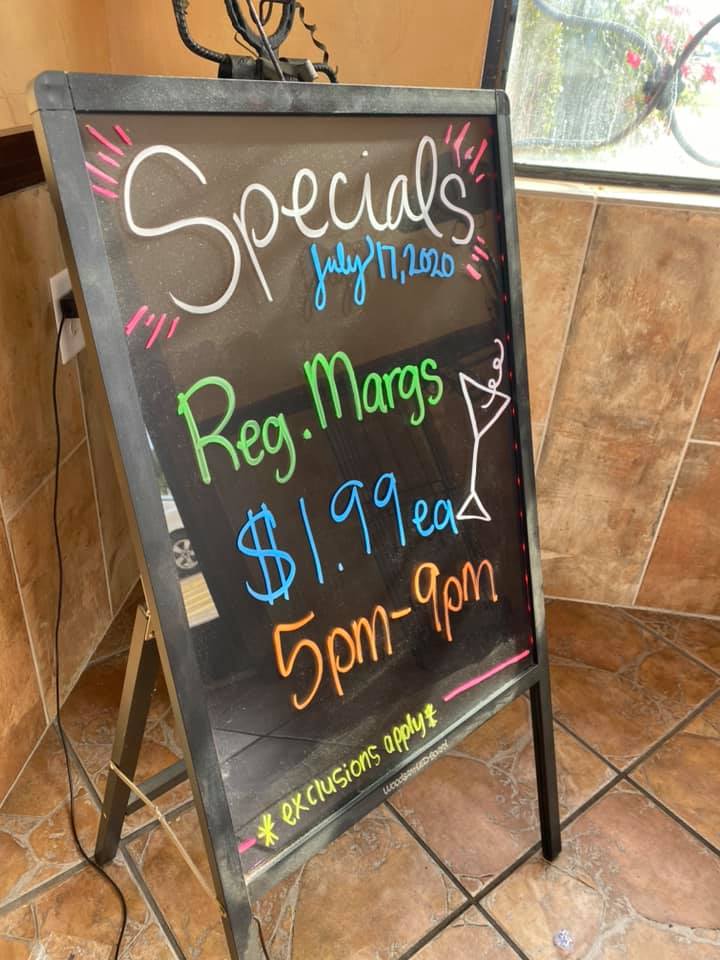 Specials
July 17, 2020
Reg. Margs
$1.99 ea
5pm-9pm
*exclusions apply*